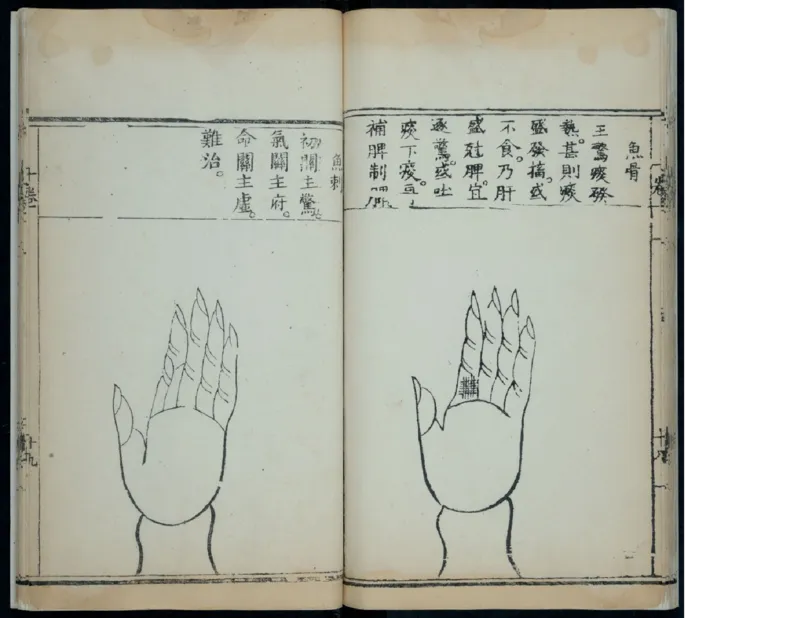 魚骨
主驚痰發
熱甚則痰
盛發搐或
不食乃肝
盛尅脾宜
逐驚或吐
痰下痰
補脾制肝
魚刺
初關主驚
氣關主府
命關主虛
難治
十九